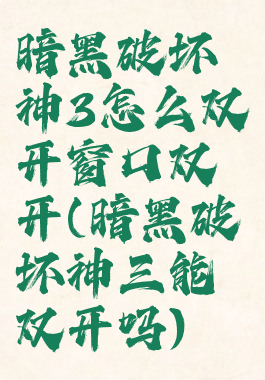 暗黑破坏
神3怎么双
开窗口双
开(暗黑破
坏神三能
双开吗)